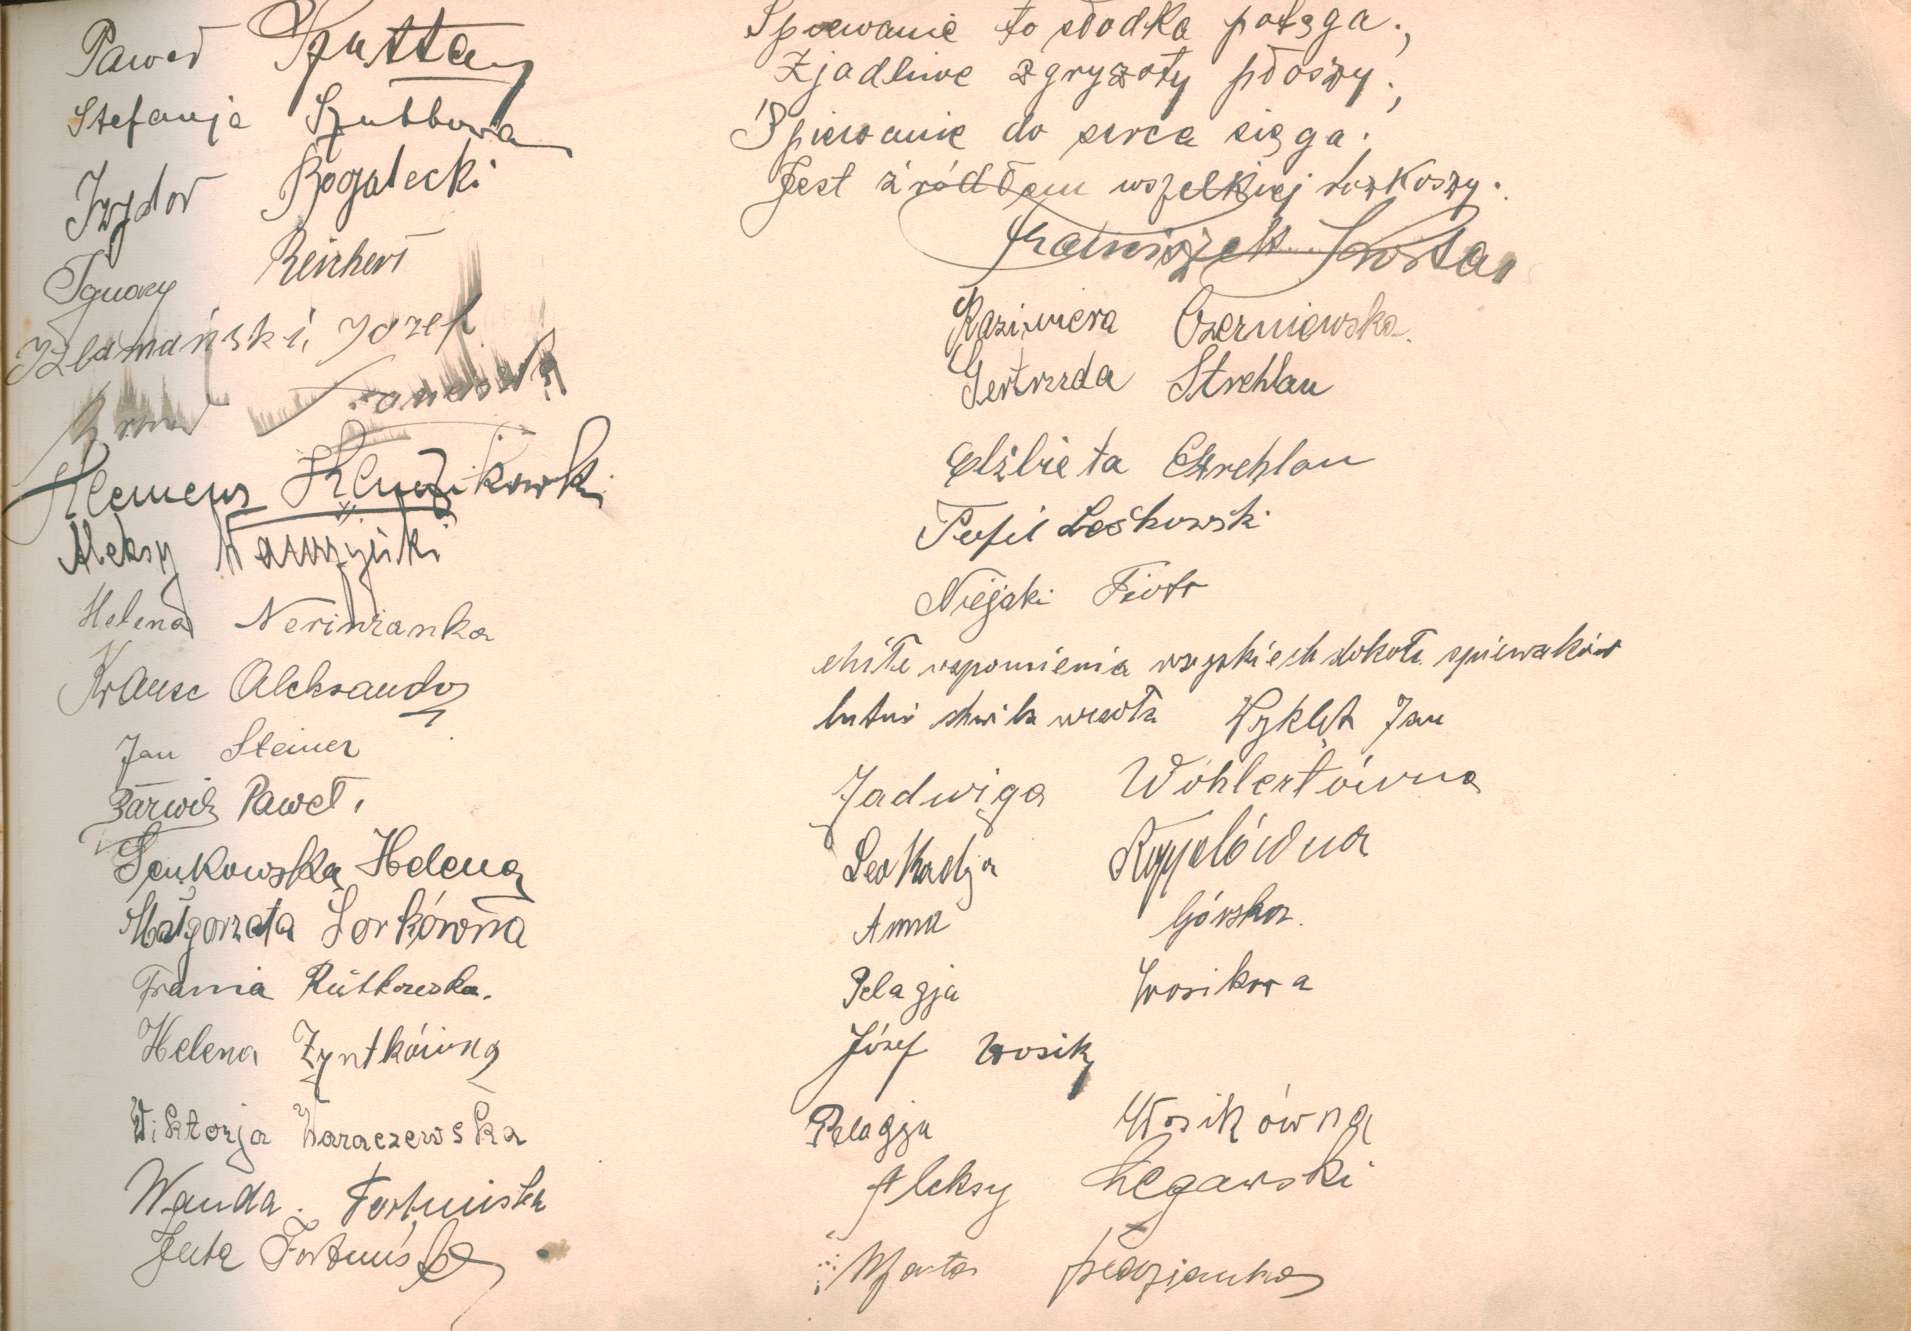 Paweł Szutta
Stefanja Szuttowa
Izydor Rogalecki
Ignacy Reichert
Józef
Klemens
Aleksy Wawrzyński
Helena
Krause Aleksander
Jan Steiner
Paweł.
Senkowska Helena
Małgorzata Lorkówna
Frania Rutkowska.
Helena Zyntkówna
Wiktorja Waraczewska
Wanda. Fortuńska
Fortuńska
Śpiewanie to słodka potęga.,
Zjadliwe zgryzoty płoszy.,
Śpiewanie do serca sięga.,
Jest źródłem wszelkiej rozkoszy.
Franciszek
Kazimiera Czerniewska.
Gertruda Strehlau
Elżbieta Strehlau
Teofil Leśkowski
Niejaki Piotr
wspomienia śpiewaków
Wyklęt Jan
Jadwiga Wohlertówna
Leokadja
Anna Górska.
Pelagja Wosikowa
Józef Wosik
Pelagja Wosikówna
Aleksy Łegawski
Marta